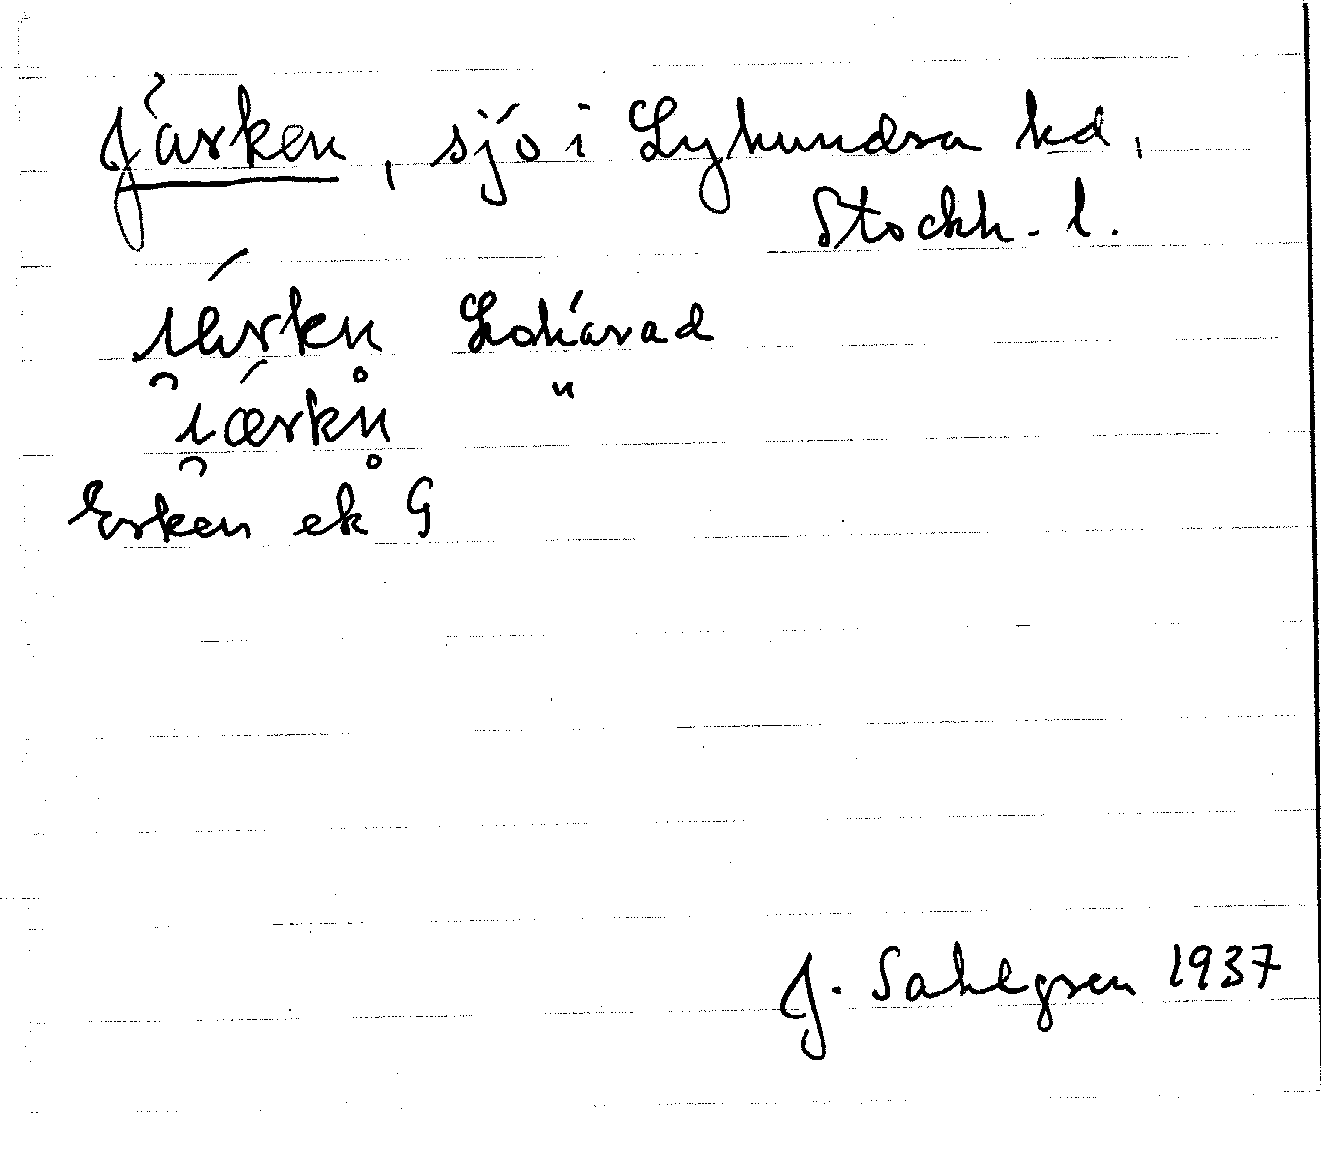 Järken, sjö i Lyhundra hd,
Stockh. l.
i̯ǽrkn̥ Lohärad
i̯ǽrkn̥ "
Erken ek G
J. Sahlgren 1937